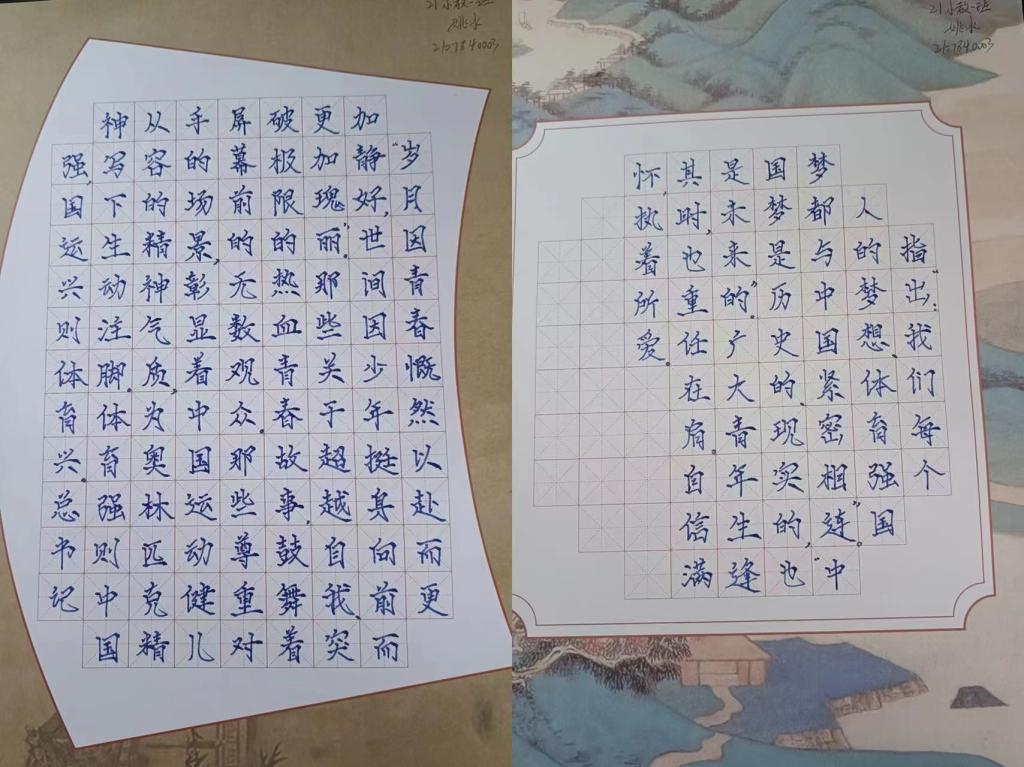 21小教一班
“岁月因青春慨然以赴而更
加静好,世间因少年挺身向前而
更加瑰丽”。那些关于超越自我、突
破极限的热血青春故事,鼓舞着
屏幕前的无数观众。那些尊重对
手的场景,彰显着中国运动健儿
从容的精神气质,为奥林匹克精
神写下生动注脚。体育强则中国
强,国运兴则体育兴。总书记
21小教一班
指出:“我们每个
人的梦想、体育强国
梦都与中国紧密相连”。“中
国梦是历史的、现实的,也
是未来的”。广大青年生逢
其时,也重任在肩。自信满
怀,执着所爱。